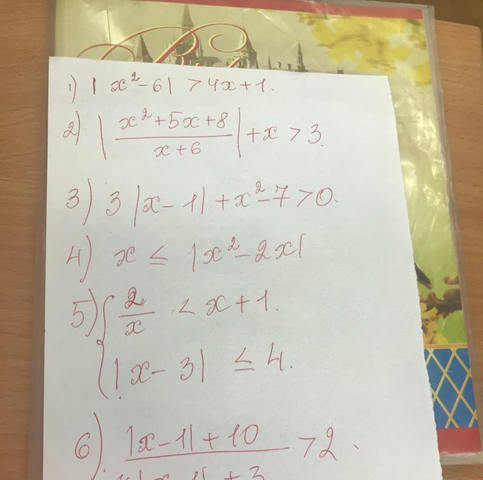 1) | x² - 6 | > 4x + 1.
2) | (x² + 5x + 8)/(x + 6) | + x > 3.
3) 3 |x - 1| + x² - 7 > 0.
4) x ≤ |x² - 2x|
5) { 2/x < x + 1.
{ |x - 3| ≤ 4.
6) |x - 1| + 10
> 2.